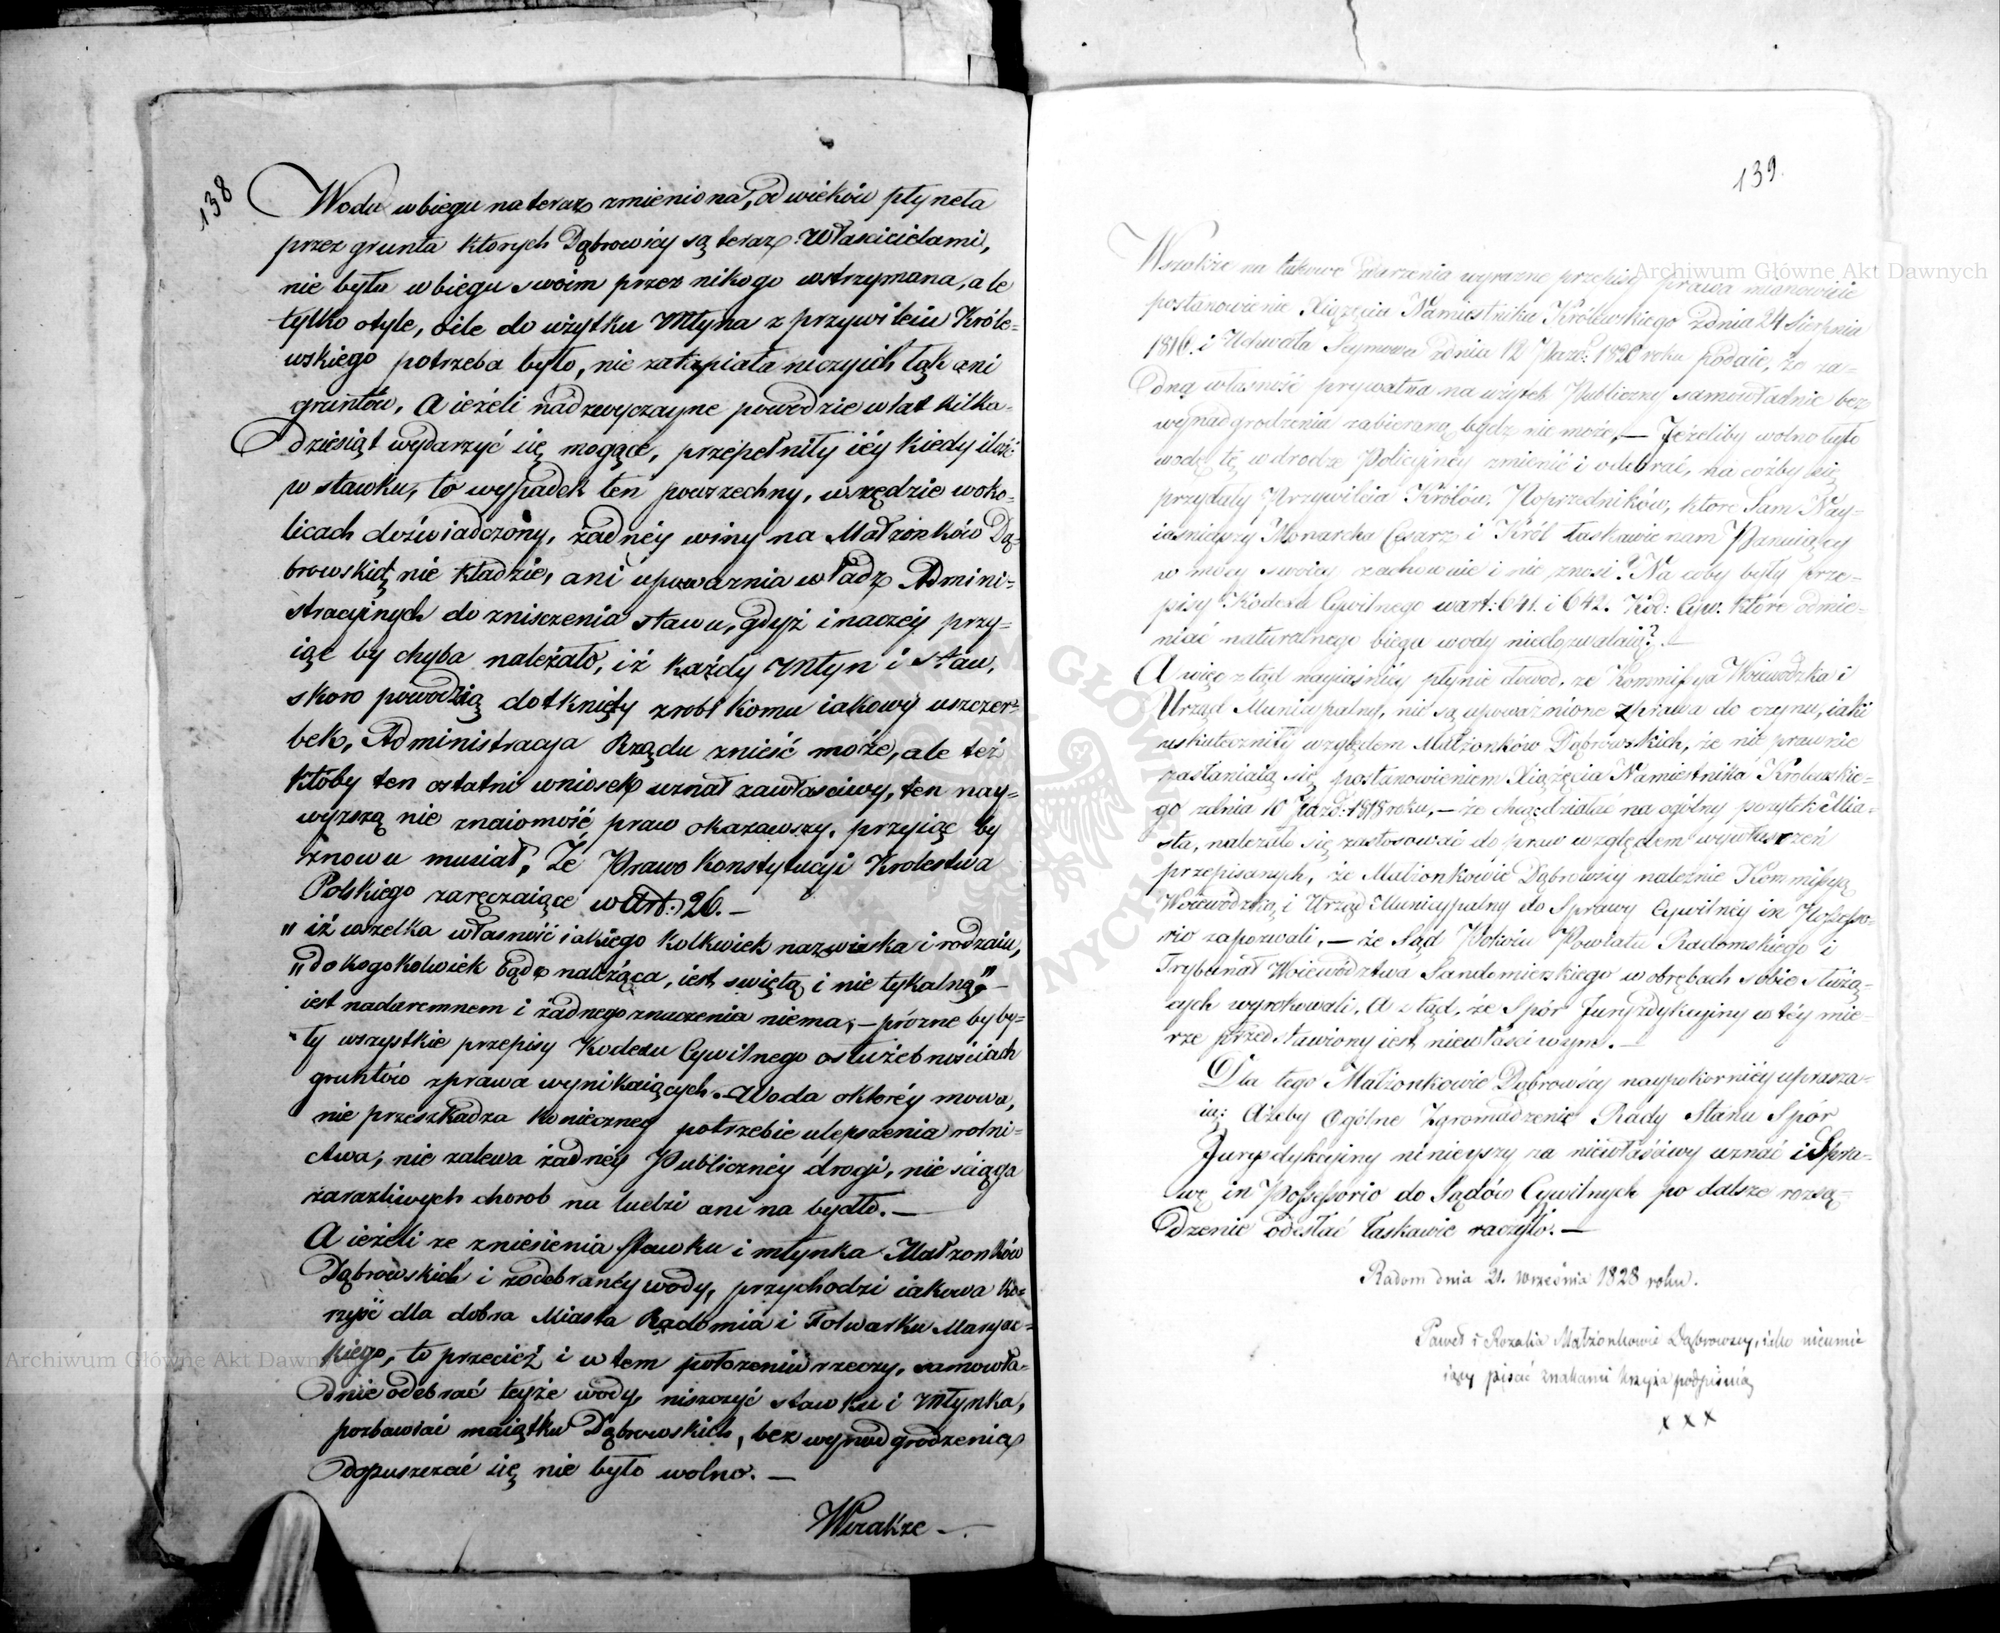 138
Woda w biegu na teraz zmieniona, od wieków płyneła
przez grunta których Dąbrowscy są teraz Właścicielami,
nie była w biegu swoim przez nikogo wstrzymana, ale
tylko otyle, oile do użytku Młyna z przywileiu Króle-
wskiego potrzeba było, nie zatapiała niczyich łąk ani
gruntów. A ieżeli nadzwyczayne powodzie w lat kilka-
dziesiąt wydarzyć się mogące, przepełniły iéy kiedy ilość
w stawku, to wypadek ten powszechny, wszędzie w oko-
licach doświadczony, żadnéy winy na Małżonków Dą-
browskich nie kładzie, ani upoważnia władz Admini-
stracyinych do zniszczenia stawu, gdyż inaczéy przy-
iąć by chyba należało, iż każdy Młyn i staw,
skoro powodzią dotknięty zrobi komu iakowy uszczer-
bek, Administracya Rządu znieść może, ale też
któby ten ostatni wniosek uznał za właściwy, ten nay-
wyższą nie znaiomość praw okazawszy, przyiąć by
znowu musiał, Że Prawo Konstytucyi Królestwa
Polskiego zaręczaiące w Art: 26. —
„ iż wszelka własność iakiego kolkwiek nazwiska i rodzaiu,
„ do kogokolwiek bądź należąca, iest swiętą i nie tykalną" —
iest nadaremnem i żadnego znaczenia niema, — prózne by by-
ły wszystkie przepisy Kodexu Cywilnego o służebnościach
gruntów z prawa wynikaiących. — Woda o któréy mowa,
nie przeszkadza koniecznéy potrzebie ulepszenia rolni-
ctwa, nie zalewa żadnéy Publicznéy drogi, nie ściąga
zaraźliwych chorob na ludzi ani na bydło. —
A ieżeli ze zniesienia stawku i młynka Małżonków
Dąbrowskich i z odebranéy wody, przychodzi iakowa ko-
rzyść dla dobra Miasta Radomia i Folwarku Maryac-
kiego, to przecież i w tem położeniu rzeczy, samowła-
dnie odebrać teyże wody, niszczyć stawku i Młynka,
pozbawiać maiątku Dąbrowskich, bez wynadgrodzenia
dopuszczać się nie było wolno. —
Wszakże —
139.
Wszakże na takowe zdarzenia wyrazne przepisy prawa mianowicie
postanowienie Xiążęcia Namiestnika Królewskiego z dnia 24 Sierpnia
1816. i Uchwała Seymowa z dnia 12 Paźd: 1820 roku podaie, że ża-
dną własność prywatna na użytek Publiczny samowładnie bez
wynadgrodzenia zabieraną bydź nie może, — Jeżeliby wolno było
wodę tę w drodze Policyjnéy zmienić i odebrać, na cóżby się
przydały Przywileia Królów, Poprzedników, które Sam Nay-
iaśnieyszy Monarcha Cesarz i Król łaskawie nam Panuiący
w mocy swoiéy zachowuie i nie znosi? Na coby były prze-
pisy Kodexu Cywilnego w art: 641. i 642. Kod: Cyw: które odmie-
niać naturalnego biegu wody niedozwalaią? —
A więc ztąd nayiaśniéy płynie dowod, że Kommissya Woiewódzka i
Urząd Municypalny, nie są upoważnione z prawa do czynu, iaki
uskuteczniły względem Małżonków Dąbrowskich, że nie prawnie
zasłaniaią się postanowieniem Xiążęcia Namiestnika Królewskie-
go z dnia 10 Paźd: 1818 roku, — że chcąc działać na ogólny pożytek Mia-
sta, należało się zastosować do praw względem wywłaszczeń
przepisanych, że Małżonkowie Dąbrowscy należnie Kommissyą
Woiewódzką i Urząd Municypalny do Sprawy Cywilnéy in Possesso-
rio zapozwali, — że Sąd Pokoiu Powiatu Radomskiego i
Trybunał Woiewództwa Sandomierskiego w obrębach sobie służą-
cych wyrokowali, A ztąd, że Spór Juryzdykcyiny w téy mie-
rze przedstawiony iest niewłaściwym. —
Dla tego Małżonkowie Dąbrowscy naypokorniéy uprasza-
ią: Ażeby Ogólne Zgromadzenie Rady Stanu Spór
Juryzdykcyiny ninieyszy za niewłaściwy uznać i Spra-
wę in Possessorio do Sądów Cywilnych po dalsze rozsą-
dzenie odesłać łaskawie raczyło. —
Radom dnia 21. Września 1828 roku.
Paweł i Rozalia Małżonkowie Dąbrowscy, iako nieumie
iący pisać znakami krzyża podpisuią
x x x
Archiwum Główne Akt Dawnych
Archiwum Główne Akt Dawnych